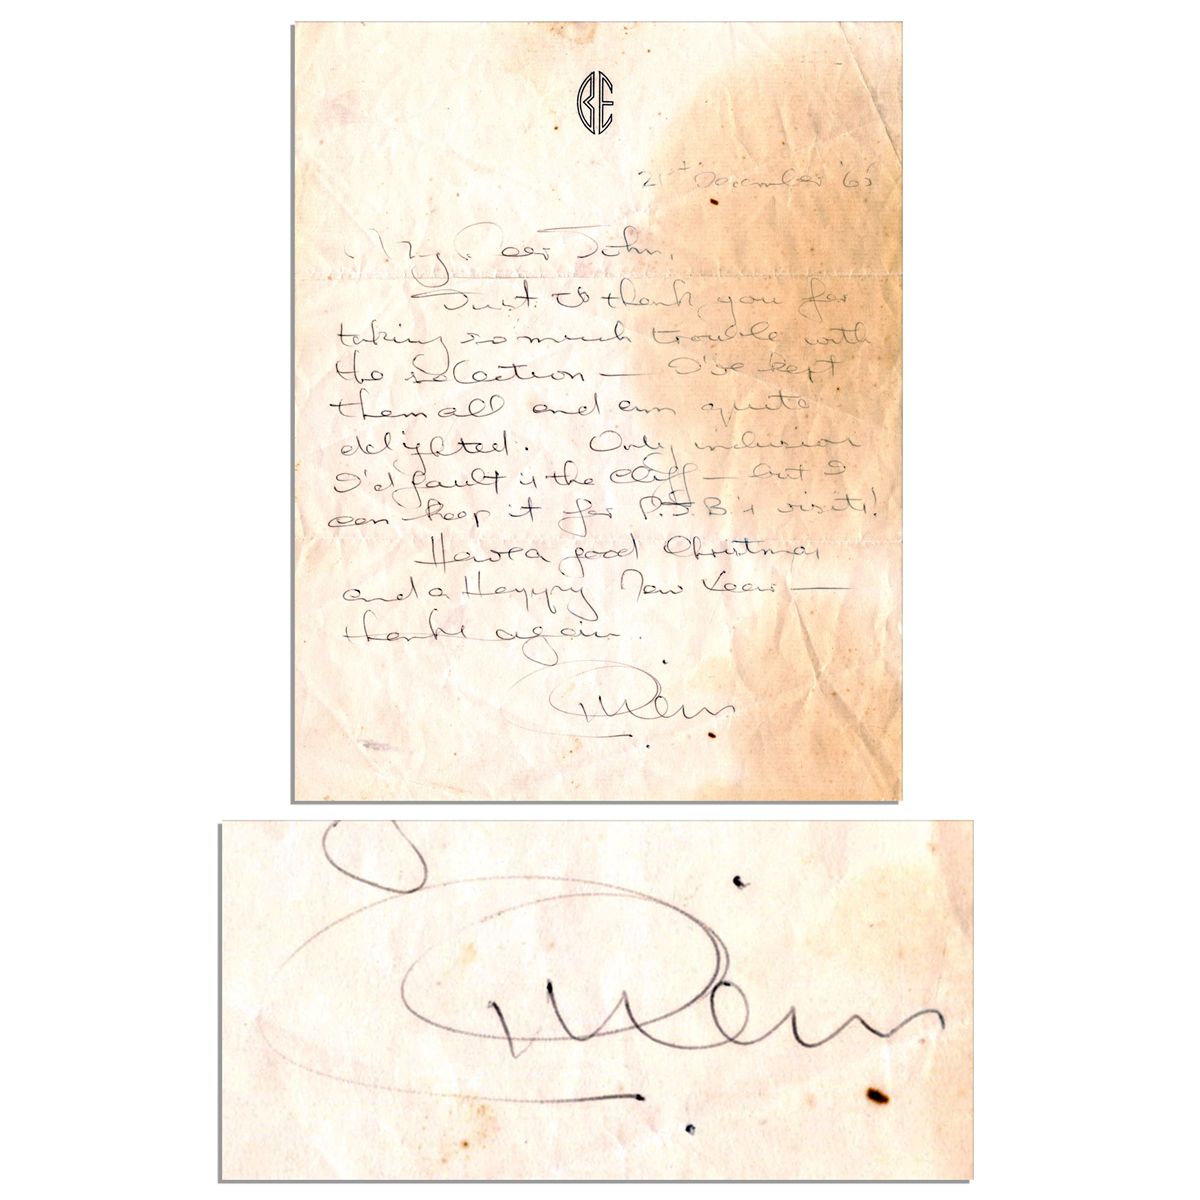 BE
21st December '65
My Dear John,
Just to thank you for
taking so much trouble with
the selection — I've kept
them all and am quite
delighted. Only inclusion
I'd fault is the Cliff — but I
can keep it for P.J.B's visits!
Have a good Christmas
and a Happy New Year —
thanks again.
Brian
Brian